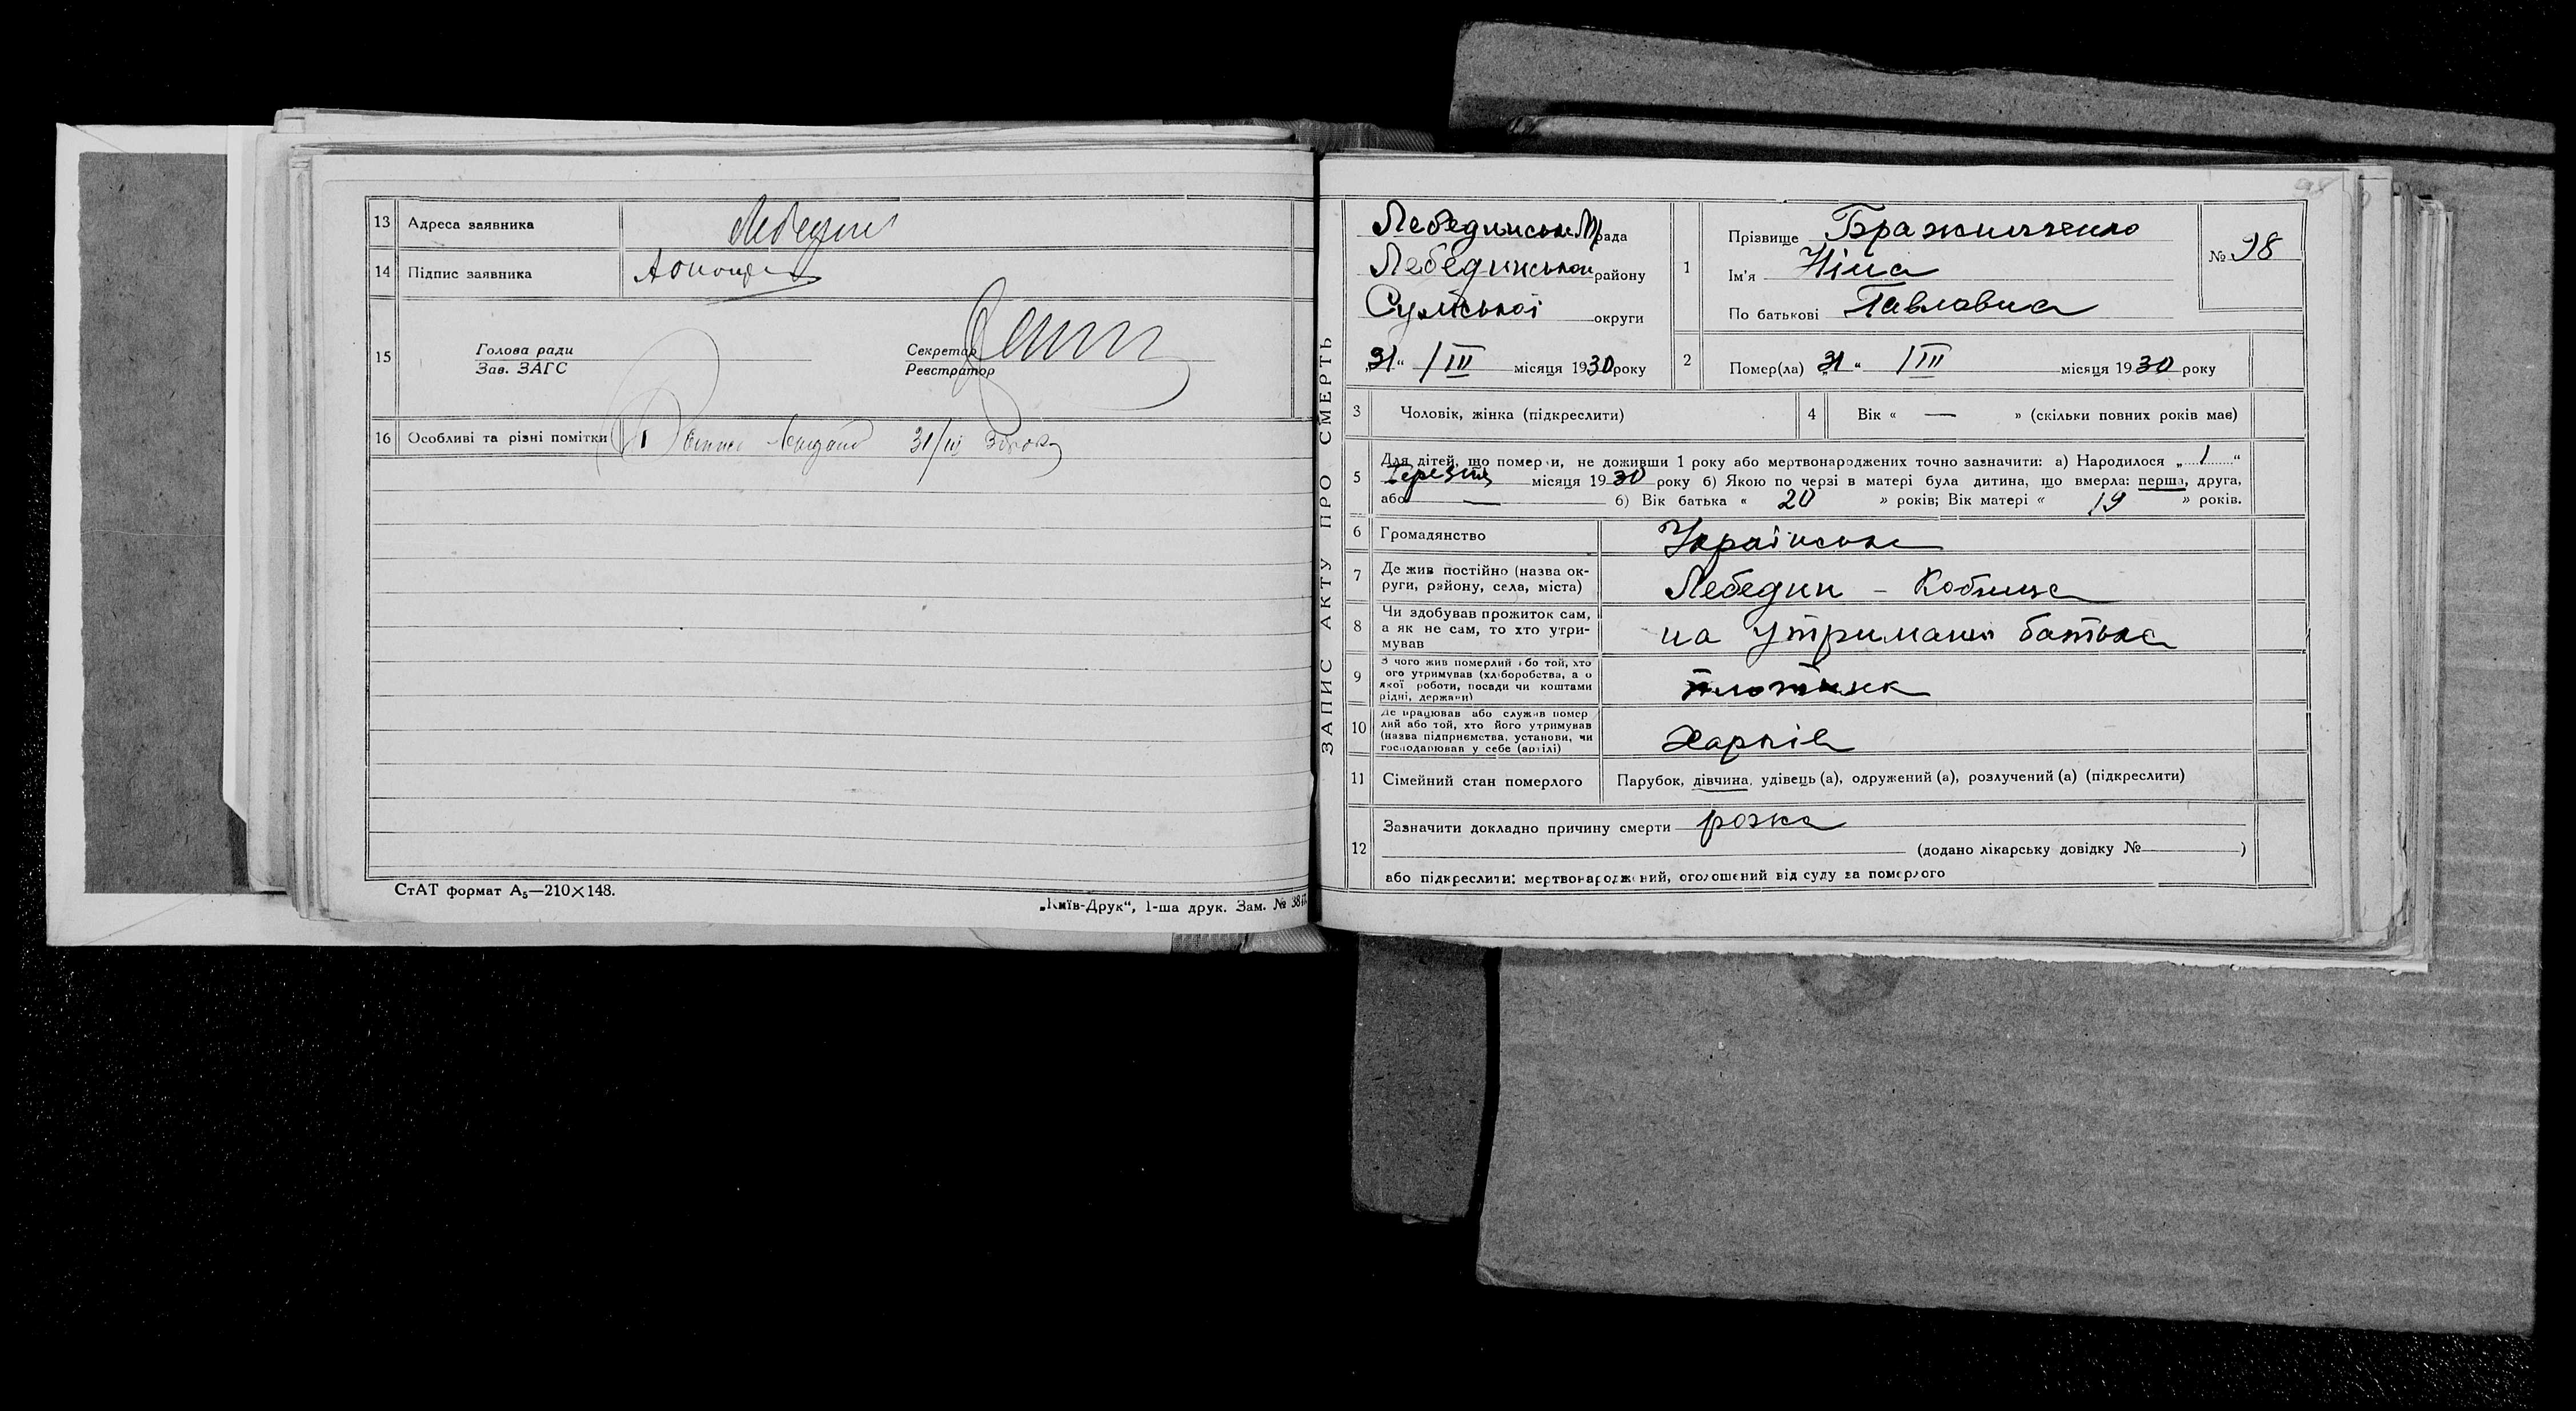 13 Адреса заявника Лебедин
14 Підпис заявника
15 Голова ради
Зав. ЗАГС
Секретар
Реєстратор
16 Особливі та різні помітки 31/III 30 рок
СтАТ формат А₅—210×148.
„Київ-Друк“, 1-ша друк. Зам. № 38
ЗАПИС АКТУ ПРО СМЕРТЬ
Лебединська М рада
Лебединського району
Сумської округи
„31“ / III місяця 1930 року
1 Прізвище Бражниченко
Ім'я Ніна
По батькові Павлавна
№ 98
2 Помер(ла) „31“ / III місяця 1930 року
3 Чоловік, жінка (підкреслити)
4 Вік « — » (скільки повних років мав)
5 Для дітей, що померли, не доживши 1 року або мертвонароджених точно зазначити: а) Народилося „ 1 “
березня місяця 1930 року б) Якою по черзі в матері була дитина, що вмерла: перша, друга,
або — б) Вік батька « 20 » років; Вік матері « 19 » років.
6 Громадянство Українська
7 Де жив постійно (назва ок-
руги, району, села, міста) Лебедин –
8 Чи здобував прожиток сам,
а як не сам, то хто утри-
мував на утриманні батька
9 З чого жив померлий або той, хто
його утримував (хліборобства, а о
якої роботи, посади чи коштами
рідні, держави) плотник
10 Де працював або служив помер
лий або той, хто його утримував
(назва підприємства, установи, чи
господарював у себе (артілі) Харків
11 Сімейний стан померлого Парубок, дівчина, удівець (а), одружений (а), розлучений (а) (підкреслити)
12 Зазначити докладно причину смерти рожа
(додано лікарську довідку № )
або підкреслити: мертвонароджений, оголошений від суду за померлого